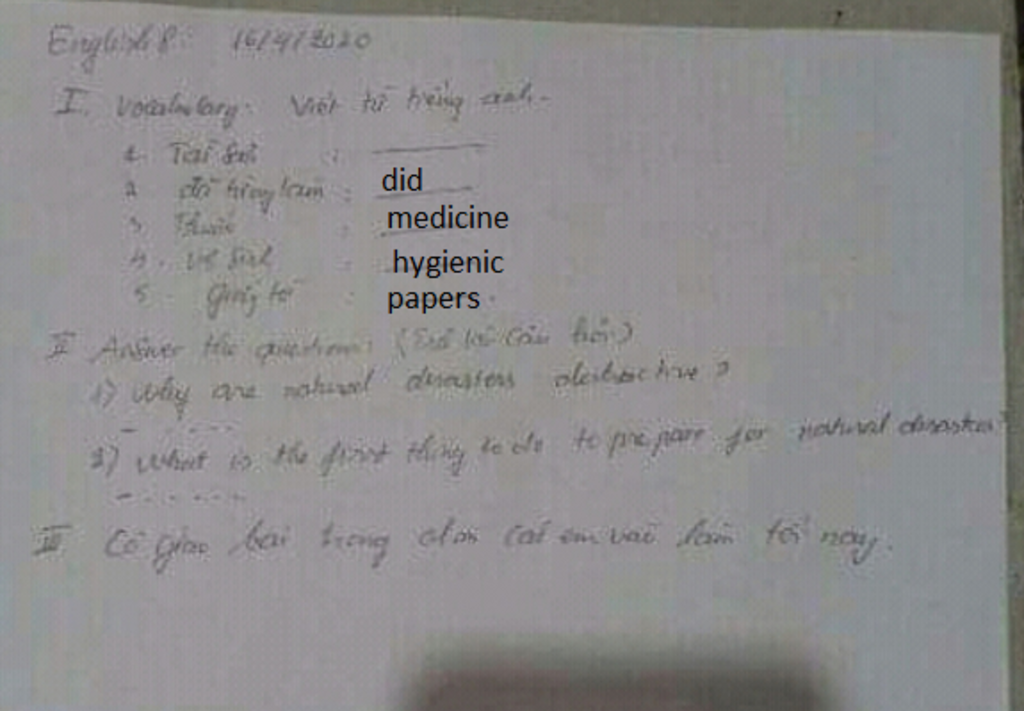 English 8: 16/4/2020
I. Vocabulary: Viết từ tiếng anh.
1. Tài sản :
2. đã từng làm : did
3. Thuốc : medicine
4. vệ sinh : hygienic
5. Giấy tờ : papers
II Answer the questions: (Trả lời câu hỏi)
1) Why are natural disasters destructive?
2) What is the first thing to do to prepare for natural disaster?
III Cô giao bài trong các em vào làm tối nay.